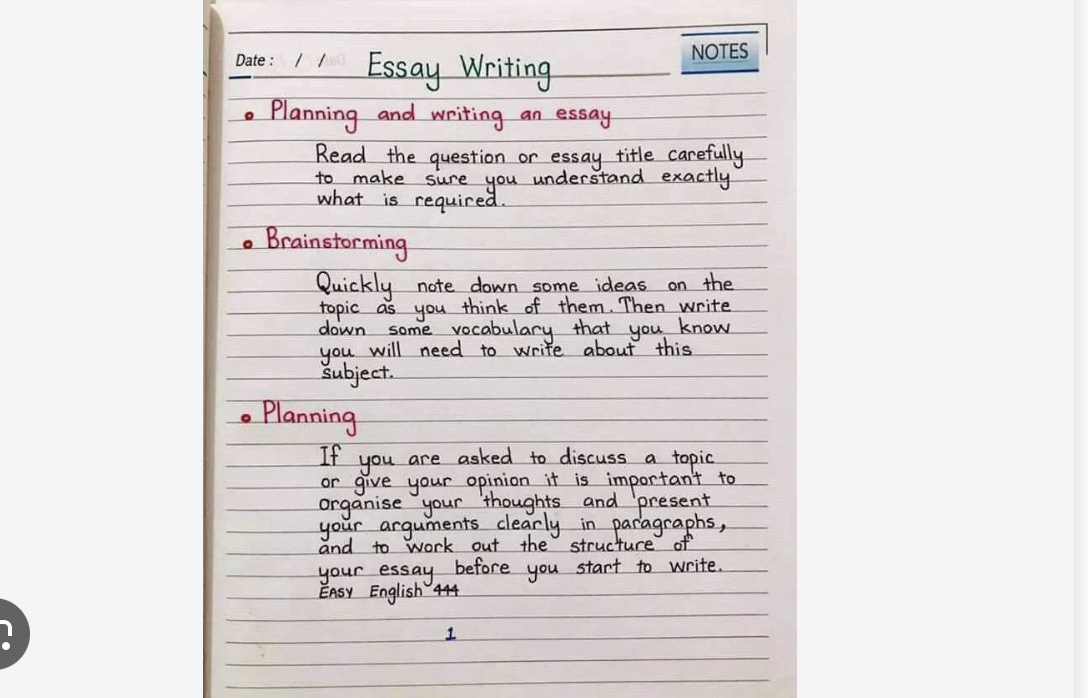 Date : / / Essay Writing NOTES
• Planning and writing an essay
Read the question or essay title carefully
to make sure you understand exactly
what is required.
• Brainstorming
Quickly note down some ideas on the
topic as you think of them. Then write
down some vocabulary that you know
you will need to write about this
subject.
• Planning
If you are asked to discuss a topic
or give your opinion it is important to
organise your thoughts and present
your arguments clearly in paragraphs,
and to work out the structure of
your essay before you start to write.
EASY English 444
1